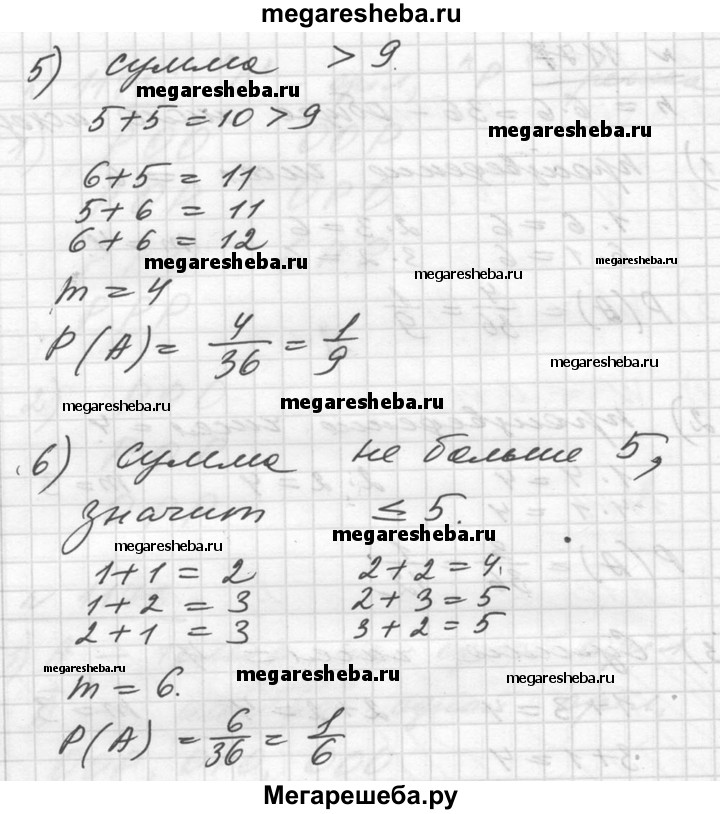 megaresheba.ru
5) сумма > 9.
megaresheba.ru
5+5 = 10 > 9
megaresheba.ru
6+5 = 11
5+6 = 11
6+6 = 12
megaresheba.ru
megaresheba.ru
megaresheba.ru
m = 4
P(A) = 4/36 = 1/9
megaresheba.ru
megaresheba.ru
megaresheba.ru
6) сумма не больше 5,
значит ≤ 5.
megaresheba.ru
megaresheba.ru
1+1 = 2 2+2 = 4.
1+2 = 3 2+3 = 5
2+1 = 3 3+2 = 5
megaresheba.ru
megaresheba.ru
megaresheba.ru
m = 6.
P(A) = 6/36 = 1/6
Мегарешеба.ру